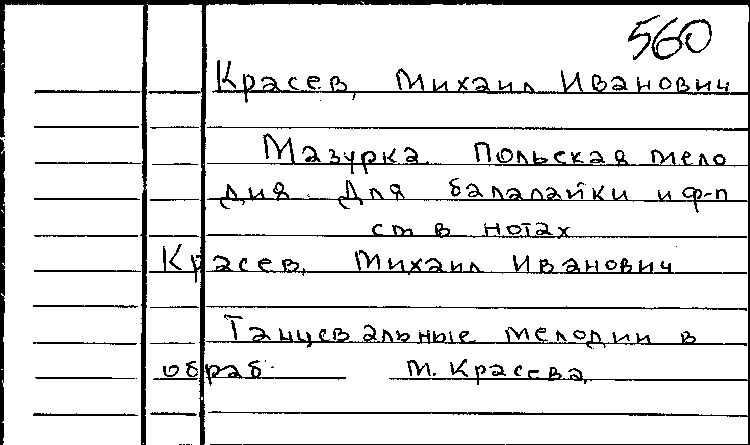 560
Красев, Михаил Иванович
Мазурка. Польская мело
дия. Для балалайки и ф-п
см в нотах
Красев, Михаил Иванович
Танцевальные мелодии в
обраб. М. Красева,